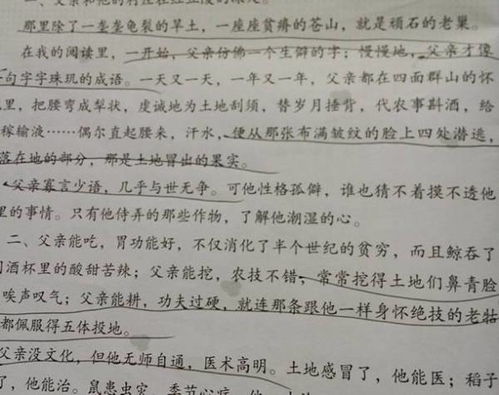 一、父亲和他的村庄在红豆
那里除了一垄垄龟裂的旱土，一座座贫瘠的苍山，就是顽石的老巢。
在我的阅读里，一开始，父亲仿佛一个生僻的字；慢慢地，父亲才像
句字字珠玑的成语。一天又一天，一年又一年，父亲都在四面群山的怀
里，把腰弯成犁状，虔诚地为土地刮须，替岁月捶背，代农事斟酒，给
稼输液……偶尔直起腰来，汗水，便从那张布满皱纹的脸上四处潜逃，
落在地的部分，那是土地冒出的果实。
父亲寡言少语，几乎与世无争。可他性格孤僻，谁也猜不着摸不透他
里的事情。只有他侍弄的那些作物，了解他潮湿的心。
二、父亲能吃，胃功能好，不仅消化了半个世纪的贫穷，而且鲸吞了
酒杯里的酸甜苦辣；父亲能挖，农技不错，常常挖得土地们鼻青脸
唉声叹气；父亲能耕，功夫过硬，就连那条跟他一样身怀绝技的老牯
都佩服得五体投地。
父亲没文化，但他无师自通，医术高明。土地感冒了，他能医；稻子
了，他能治。鼠患虫害，季节心病，他